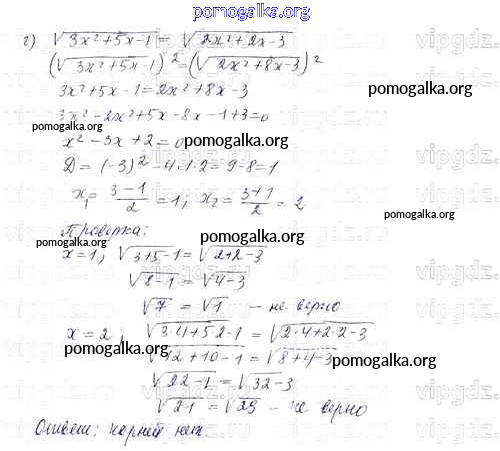 pomogalka.org
г) √3x²+5x-1 = √2x²+2x-3
(√3x²+5x-1)² = (√2x²+8x-3)²
3x²+5x-1=2x²+8x-3
3x²-2x²+5x-8x-1+3=0
pomogalka.org
x²-3x+2=0
pomogalka.org
pomogalka.org
D=(-3)²-4·1·2=9-8=1
x₁=3-1/2=1; x₂=3+1/2=2
pomogalka.org
Проверка:
pomogalka.org
pomogalka.org
x=1, √3+5-1=√2+2-3
√8-1=√4-3
√7=√1 - не верно
x=2; √3·4+5·2-1=√2·4+2·2-3
pomogalka.org
√12+10-1=√8+4-3
pomogalka.org
√22-1=√32-3
√21=√29 - не верно
Ответ: корней нет.
pomogalka.org